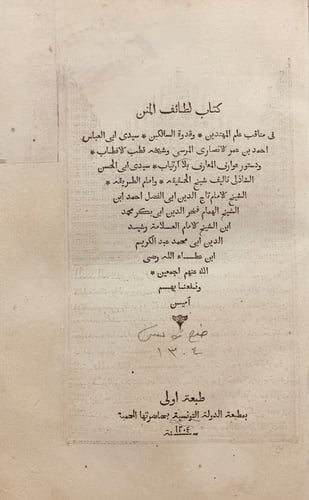 كتاب لطائف المنن
فى مناقب علم المهتدين * وقدوة السالكين * سيدى ابى العباس
احمد بن عمر الانصارى المرسى وشيخه قطب الاقطاب *
ودستور عوارف المعارف بلا ارتياب * سيدى ابى الحسن
الشاذلى تاليف شيخ الحقيقة * وامام الطريقة *
الشيخ الامام تاج الدين ابى الفضل احمد ابن
الشيخ الهمام فخر الدين ابى بكر محمد
ابن الشيخ الامام العلامة رشيد
الدين ابى محمد عبد الكريم
ابن عطاء الله رضى
الله عنهم اجمعين *
ونفعنا بهم
آمين
١٣٠٤
طبعة اولى
بمطبعة الدولة التونسية بحاضرتها المحمية
سنة ١٣٠٤